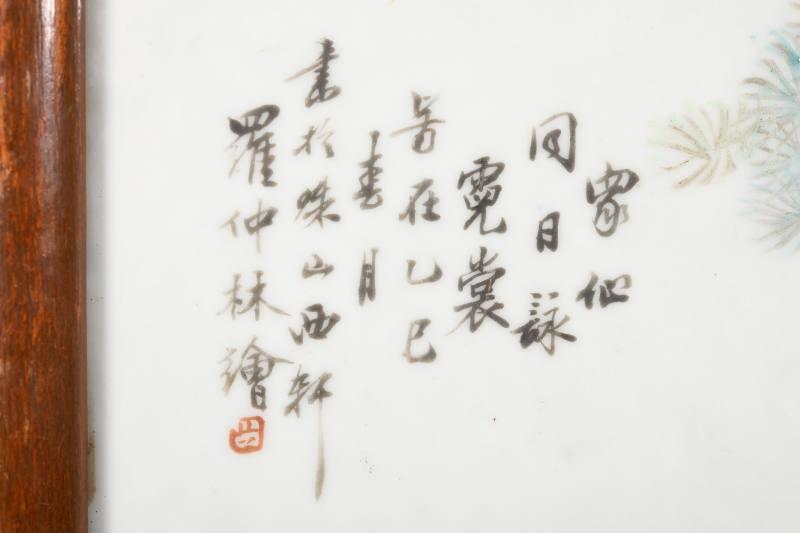 眾仙
同日詠
霓裳
時在乙巳
春月
書於珠山西軒
羅仲林繪